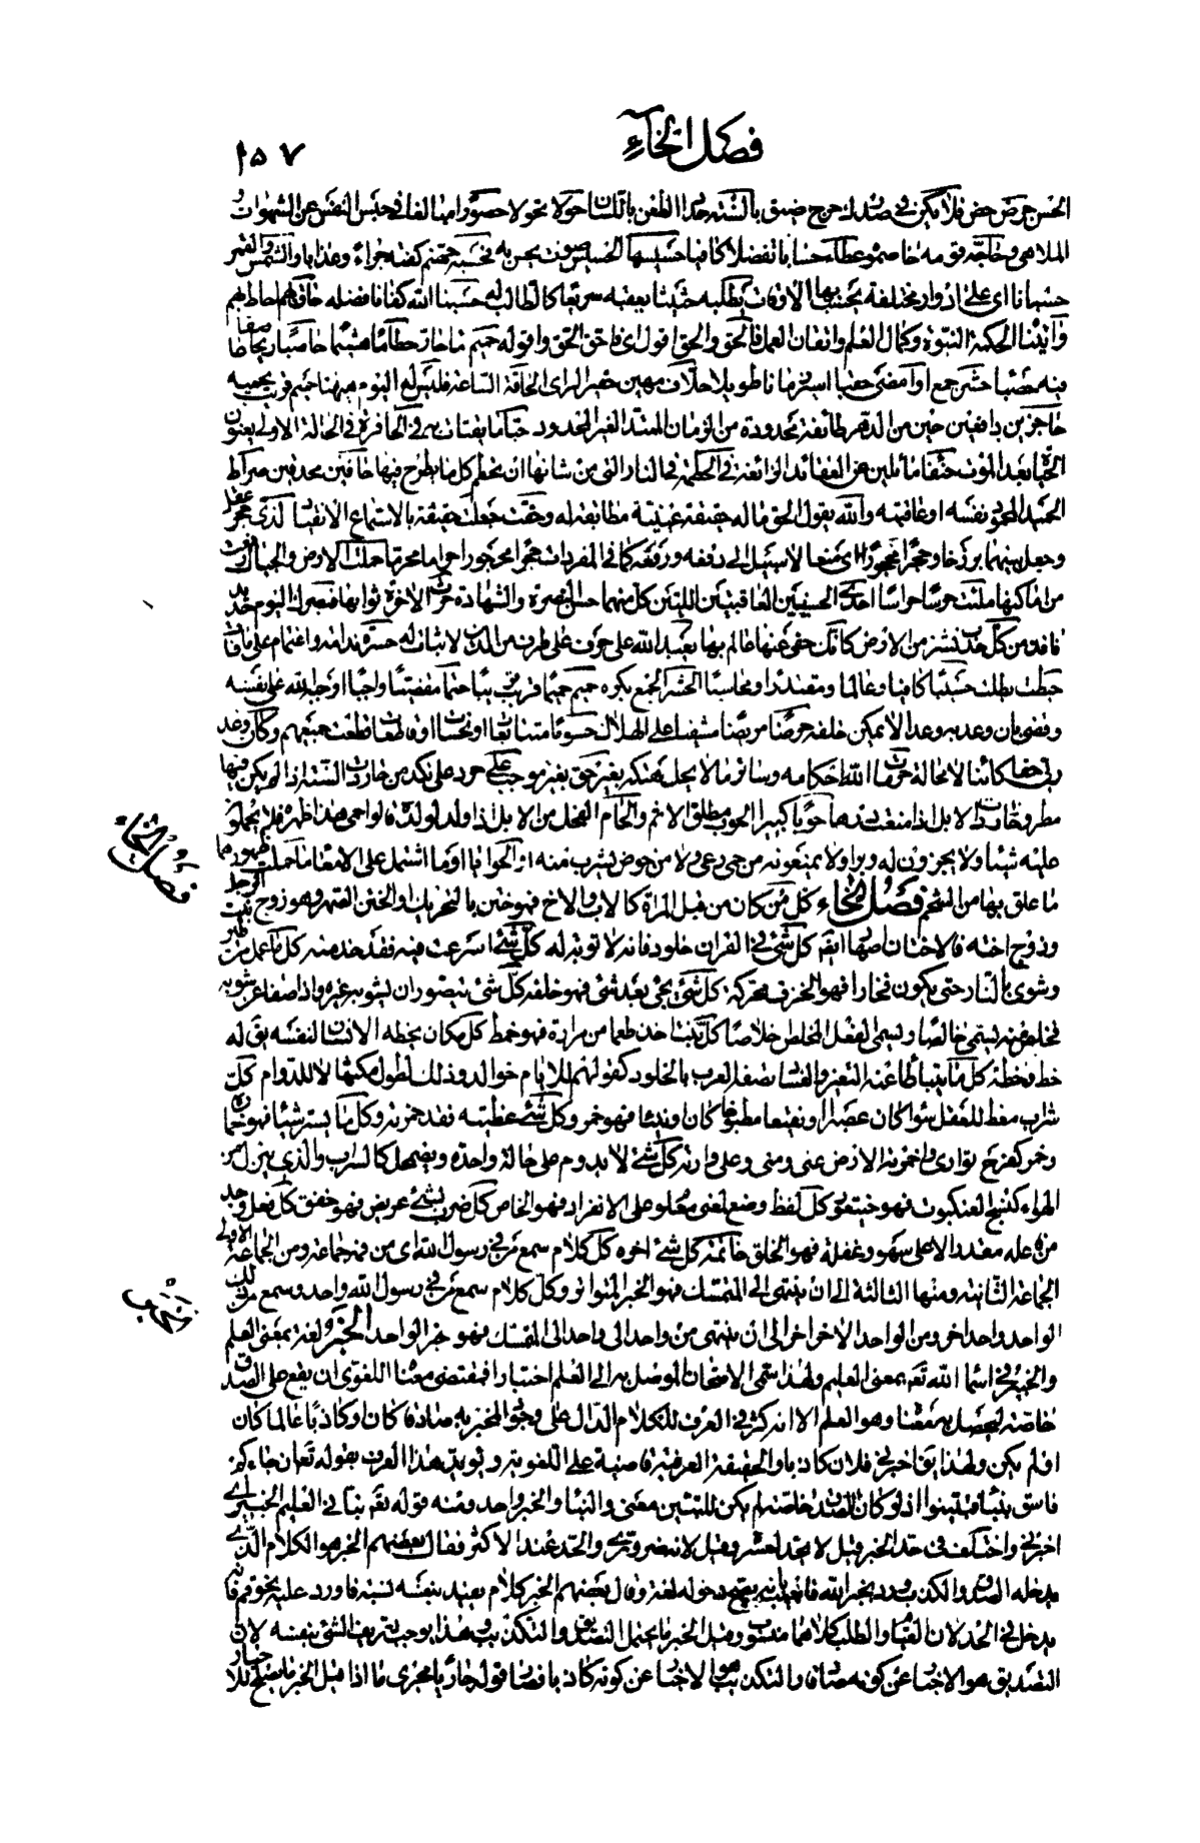 فصل الخاء
١٥٧
الحسن حرض حض فلا يكن في صدرك حرج ضيق بألسنة حداد الطعن باللسان حولا تحولا حصورا مبالغا في حبس النفس عن الشهوات
الملاهي وحاجه قومه خاصموه عطاء حسابا تفضلا كافيا حسيسها الحسيس صوت يحس به فحسبه جهنم كفته جزاء وعذابا والشمس والقمر
حسبانا اي على ادوار مختلفة يحسب بها الاوقات يطلبه حثيثا يعقبه سريعا كالطالب له حسبنا الله كفانا فضله حاق بهم احاط بهم
وآتيناه الحكمة النبوة وكمال العلم واتقان العمل فالحق والحق اقول اي فاحق الحق واقوله حميم ماء حار حطاما هشيما حاصبا ريحا صفا
فيه حصباء حشر جمع او امضي حقبا اسير زمانا طويلا حلاف مهين حقير الراي الحاقة الساعة فليس له اليوم ههنا حميم قريب يحميه
حاجزين دافعين حين من الدهر طائفة محدودة من الزمان الممتد الغير المحدود حبا ما يقتات به في الحافرة في الحالة الاولى يعنون
الحياة بعد الموت حنفاء مائلين عن العقائد الزائغة في الحطمة في النار التي من شانها ان تحطم كل ما يطرح فيها حافين محدقين صراط
الحميد المحمود نفسه او عاقبته والله يقول الحق ما له حقيقة عينية مطابقة له وحقت جعلت حقيقة بالاستماع الانقياد لذي حجر عقل
وجعل بينهما برزخا وحجرا محجورا اي منعا لا سبيل الى رفعه ودفعه كما في المفردات حجرا محجورا حراما محرما حملت الارض والجبال رفعت
من اماكنها ملئت حرسا حراسا احدى الحسنيين العاقبتين اللتين كل منهما حسنى النصرة والشهادة حرث الآخرة ثوابها فبصرك اليوم حديد
نافذ من كل حدب نشز من الارض كانك حفي عنها عالم بها يعبد الله على حرف على طرف من الدين لا ثبات له حسرة ندامة واغتمام على ما فات
حبطت بطلت حسيبا كافيا وعالما ومقتدرا ومحاسبا الحشر الجمع بكره حميم حميما قريب حتما مقضيا واجبا اوجبه الله على نفسه
وقضى بان وعد به وعدا لا يمكن خلفه حرضا مريضا مشفيا على الهلاك حسوما متتابعا او نحسات او قاطعات قطعت جميعهم وكان وعد
ربي حقا كائنا لا محالة حرمات الله احكامه وسائر ما لا يحل هتكه بغير حق بغير موجب على حرد على نكد من حاردت السنة اذا لم يكن فيها
مطر وحاردت الابل اذا منعت درها حوبا كبيرا الحوب مطلق الاثم والحام الفحل من الابل اذا ولد لولده قالوا حمى هذا ظهره فلم يحملوا
عليه شيئا ولا يجزون له وبرا ولا يمنعونه من حمى رعي ولا من حوض يشرب منه او الحوايا او ما اشتمل على الامعاء ما حملت ظهورهما
ما علق بها من الشحم فصل الخاء كل من كان من قبل المرأة كالاب والاخ فهو ختن بالتحريك والختن الصهر وهو زوج بنت الرجل
وزوج اخته فالاختان اصهار ايضا كل شيء في القرآن خلود فانه لا توبة له كل شيء اسرعت فيه فقد خدمته كل ما عمل من طين
وشوي بالنار حتى يكون فخارا فهو الخزف محركة كل شيء يجيء بعد شيء فهو خلفة كل شيء يتصور ان يشوبه غيره واذا صفا عن شوبه
فخلص عنه يسمى خالصا ويسمى الفعل المخلص خلاصا كل نبت اخذ طعما من مرارة فهو خمط كل مكان يخطه الانسان لنفسه يقال له
خط وخطة كل ما يتباطأ عنه التغير والفساد تصفه العرب بالخلود كقولهم للايام خوالد وذلك لطول مكثها لا للدوام كل
شراب مغط للعقل سواء كان عصيرا او نقيعا مطبوخا كان او نيئا فهو خمر وكل شيء غطيته فقد خمرته وكل ما يستر شيئا فهو خمار
وخمر كفرح توارى واخمرته الارض عني ومني وعلي وارته كل شيء لا يدوم على حالة واحدة ويضمحل كالسراب والذي ينزل من
الهواء كنسج العنكبوت فهو خيتعور كل لفظ وضع لمعنى معلوم على الانفراد فهو الخاص كل ضرب بشيء عريض فهو خفق كل فعل وجد
من فاعله مقدرا لا على سهو وغفلة فهو الخلق خاتمة كل شيء آخره كل كلام سمع من في رسول الله اي من فمه جماعة ومن الجماعة الاولى
الجماعة الثانية ومنها الثالثة الى ان ينتهي الى المتمسك فهو الخبر المتواتر وكل كلام سمع من في رسول الله واحد وسمع من ذلك
الواحد واحد آخر ومن الواحد الآخر آخر الى ان ينتهي من واحد الى واحد الى المتمسك فهو خبر الواحد الخبر لغة بمعنى العلم
والخبير في اسماء الله تعالى بمعنى العليم ولهذا سمي الامتحان الموصل به الى العلم اختبارا فمقتضى معناه اللغوي ان يقع على الصدق
خاصة ليحصل به معناه وهو العلم الا انه كثر في العرف للكلام الدال على وجود المخبر به صادقا كان او كاذبا عالما كان
او لم يكن ولهذا يقال اخبرني فلان كاذبا والحقيقة العرفية قاضية على اللغوية ويؤيد هذا العرف بقوله تعالى ان جاءكم
فاسق بنبأ فتبينوا اذ لو كان للصدق خاصة لم يكن للتبين معنى والنبأ والخبر واحد ومنه قوله تعالى نبأني العليم الخبير اي
اخبرني واختلف في حد الخبر قيل لا يحد لعسره وقيل لانه ضروري والحد عند الاكثر فقال بعضهم الخبر هو الكلام الذي
يدخله الصدق والكذب ورد بخبر الله فاجيب بانه يصح دخوله لغة وقال بعضهم الخبر كلام يفيد بنفسه نسبة فاورد عليه نحو قم فانه
يدخل في الحد لان القيام والطلب كلاهما منسوب وقيل الخبر ما يحتمل التصديق والتكذيب وهذا يوجب تعريف الشيء بنفسه لان
التصديق هو الاخبار عن كونه صادقا والتكذيب هو الاخبار عن كونه كاذبا فصار قوله جاريا مجرى ما اذا قيل الخبر ما يصلح للاخبار
فصل الخاء